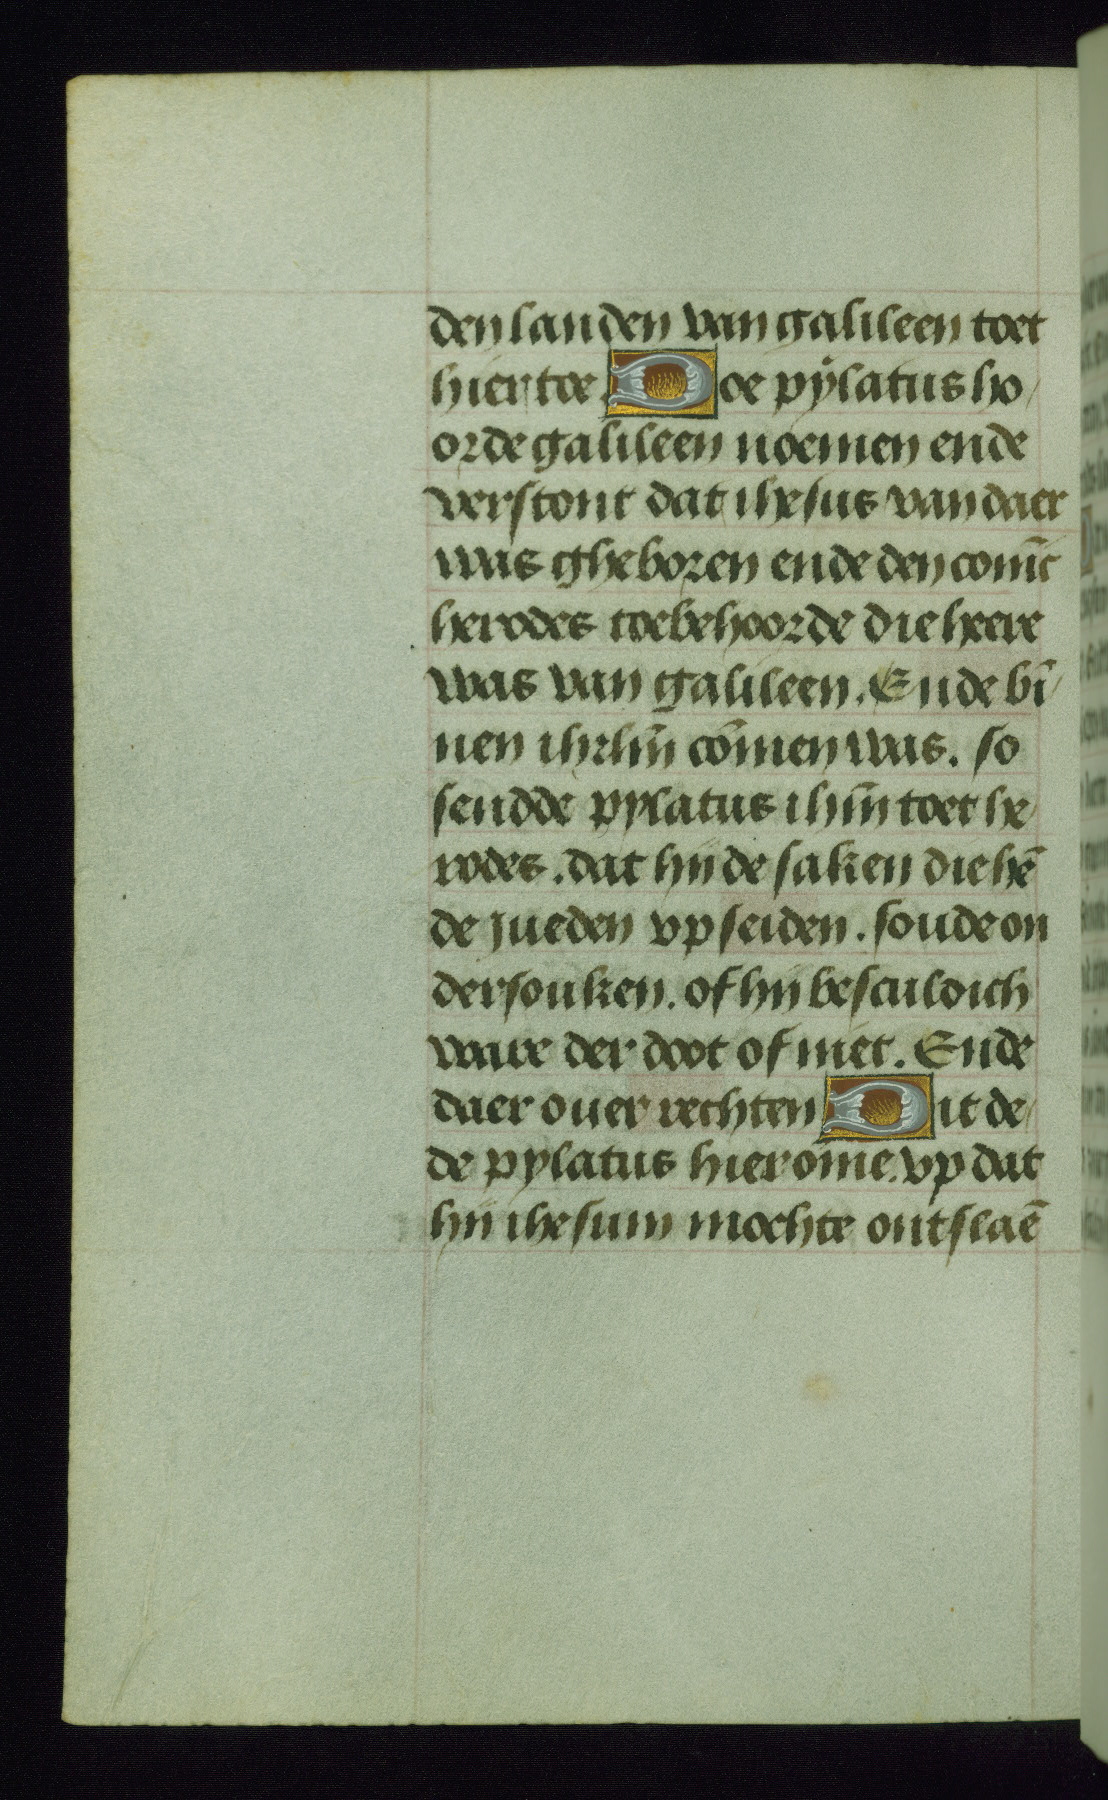 den landen van galileen toet
hier toe. Doe pÿlatus ho/
orde galileen noemen ende
verstont dat ihesus van daer
was gheboren ende den coninc
herodes toebehoorde die heere
was van galileen. Ende bī/
nen ihrlm̄ cōmen was. so
sendde pylatus ihm̄ toet he/
rodes. dat hij de saken die hē
de jueden vp seiden. soude on
dersouken. of hij besculdich
ware der doot of niet. Ende
daer ouer rechten Dit de/
de pylatus hierome. vp dat
hij ihesum mochte ontslaē